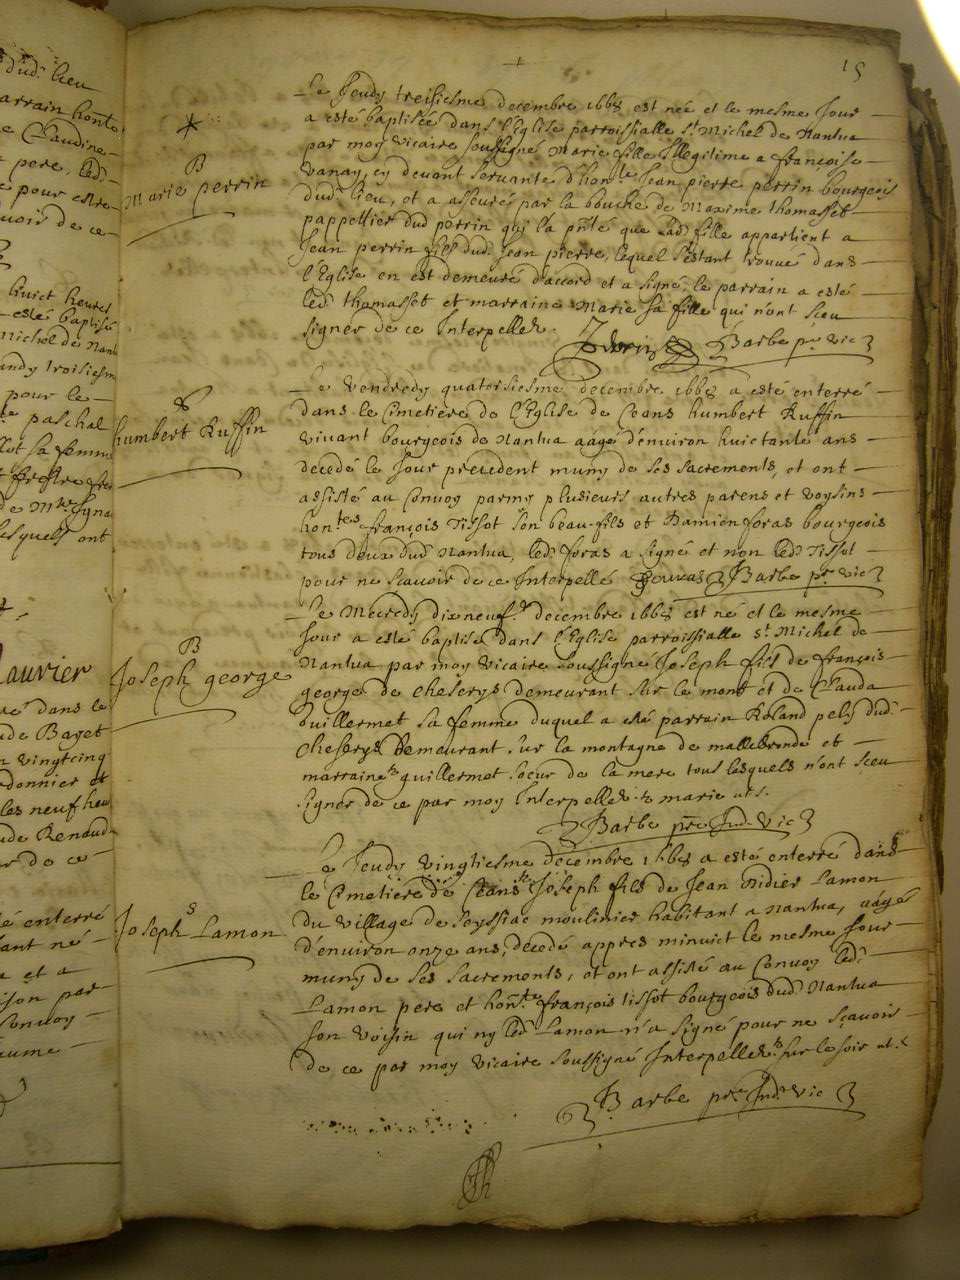 dud. lieu
parrain honte
Claudine
pere, led.
pour estre
de ce
huict heures
esté baptisé
Michel de Nant
pour le
paschal
sa femme
lesquels ont
Laurier
dans le
de Baget
vingtcinq
donnier et
les neuf heu
de Renaud
de ce
enterré
né
et a
par
Convoy
15
Le Jeudy treisiesme decembre 1668 est née et le mesme Jour
a esté baptisée dans l'Eglise parroissialle st. Michel de Nantua
par moy vicaire soussigné Marie fille Illegitime a françoise
Vanay, cy devant servante d'honle. Jean pierre perrin bourgeois
dud. lieu, et a asseuré par la bouche de Maxime thomasset
pappellier dud perrin qui l'a pnté que lad. fille appartient a
Jean perrin fils dud. Jean pierre, lequel s'estant trouvé dans
l'Eglise en est demeuré d'accord et a signé, le parrain a esté
led. thomasset et marraine Marie sa fille qui n'ont sceu
signer de ce Interpellez.
Barbe pre vic
B
Marie perrin
Le Vendredy quatorsiesme decembre 1668 a esté enterré
dans le Cimetiere de l'Eglise de Ceans humbert Ruffin
vivant bourgeois de Nantua aagé d'environ huictante ans
decedé le Jour precedent muny de ses sacrements, et ont
assisté au Convoy parmy plusieurs autres parens et voysins
hontes. françois Tissot son beau-fils et Damien foras bourgeois
tous deux dud. Nantua, led. foras a signé et non led. Tissot
pour ne scavoir de ce Interpellé Barbe pre vic
S
humbert Ruffin
Le Mecredy dixneuf.e decembre 1668 est né et le mesme
Jour a esté baptisé dans l'Eglise parroissialle st. Michel de
Nantua par moy vicaire soussigné Joseph fils de françois
george de cheserys demeurant sur le mont et de Clauda
guillermet sa femme duquel a esté parrain Roland pely dud.
Cheserys demeurant sur la montagne de et
marraine guillermet soeur de la mere tous lesquels n'ont sceu
signer de ce par moy Interpellez. marie
Barbe pre Ind. Vic
B
Joseph george
Le Jeudy vingtiesme decembre 1668 a esté enterré dans
le Cimetiere de Ceans Joseph fils de Jean Didier Lamon
du village de Seyssiac moulinier habitant a Nantua, aagé
d'environ onze ans, decedé appres minuict le mesme Jour
muny de ses sacrements, et ont assisté au Convoy led.
Lamon pere et honte. françois tissot bourgeois dud. Nantua
son voisin qui ny led. Lamon n'a signé pour ne sçavoir
de ce par moy vicaire soussigné Interpellez. sur le soir
Barbe pre Ind. vic
S
Joseph Lamon